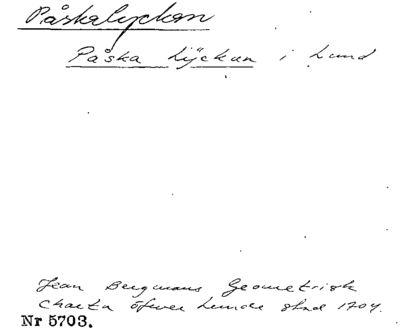 Påskalyckan
Påska Lÿckan i Lund
Jean Bergmans Geometrisk
Charta öfwer Lunds stad 1704.
Nr 5703.